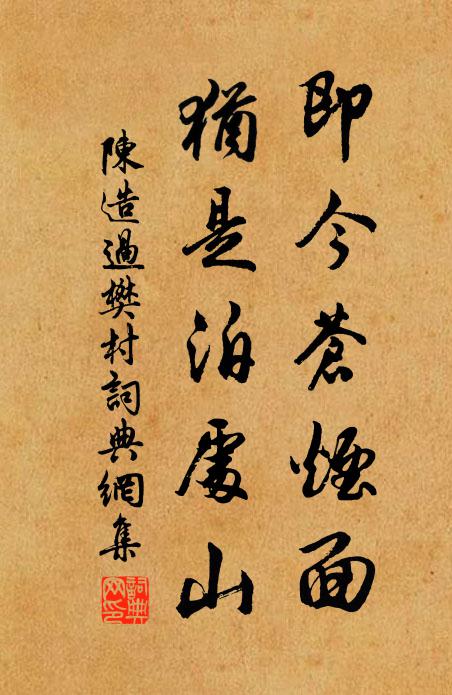 即今蒼煙面
猶是泊處山
陳造過樊村詞典網集
詞典網印